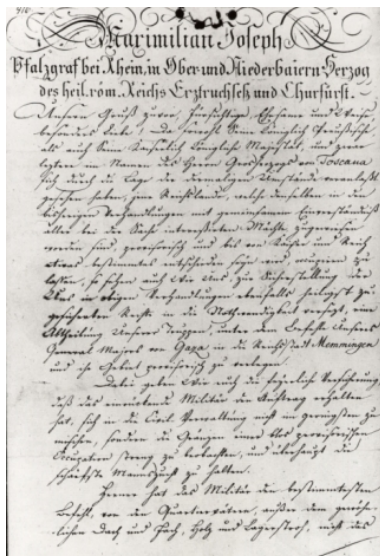 Maximilian Joseph
Pfalzgraf bei Rhein, in Ober- und Niederbaiern Herzog
des heil. röm. Reichs Erztruchseß und Churfürst.
Unsern Gruß zuvor, Fürsichtige Ehrsame und Weise,
besonders Liebe, und sowohl Seine Königlich Preußische
als auch Seine Kaiserlich Königliche Majestät, und zwar
letztere im Namen des Herrn Grosherzogs von Toscana
sich durch die Lage der dermaligen Umstände veranlaßt
gesehen haben, jene Reichslande, welche denselben in den
bisherigen Verhandlungen mit gemeinsamem Einverständniß
aller bei der Sache interessirten Mächte zugewiesen
worden sind, provisorisch und bis von Kaiser und Reich
etwas bestimmtes entschieden seyn wird occupiren zu
lassen, so sehen auch Wir Uns zur Sicherstellung der
Uns in obigen Verhandlungen ebenfalls
Rechte in die Nothwendigkeit versezt, eine
Abtheilung Unserer Truppen, unter dem Befehle Unsers
General Majors von Gaza in die Reichsstadt Memmingen
und ihr Gebiet provisorisch zu verlegen.
Dabei geben Wir euch die feyerliche Versicherung,
daß das einrückende Militär den Auftrag erhalten
hat, sich in die Civil-Verwaltung nicht im geringsten zu
mischen, sondern die Gränzen einer blos provisorischen
Occupation streng zu beobachten, und überhaupt die
schärfste Mannszucht zu halten.
Ferner hat das Militär den bestimmtesten
Befehl, von den Quartierträgern, außer dem gewöhn-
lichen Dach und Fach, Holz und Lagerstroh, nicht das